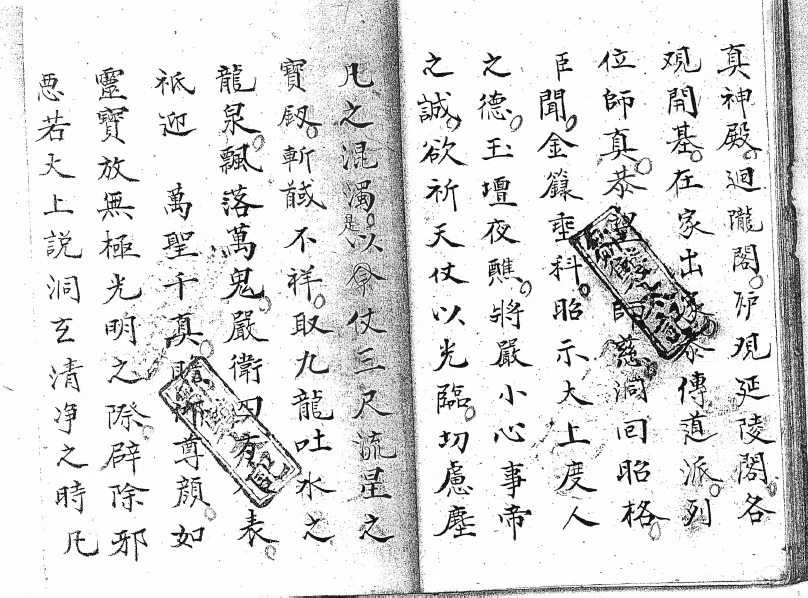 真神殿迴隴閣炉観延陵閣各
观開基在家出家各傳道派列
位師真恭望師慈洞回昭格
臣聞金籙垂科昭示大上度人
之德玉壇夜醮將嚴小心事帝
之誠欲祈天仗以光臨切慮塵
凡之混濁是以僉仗三尺流星之
寶釼斬馘不祥取九龍吐水之
龍泉飄落萬鬼嚴衛四表
祇迎 萬聖千真瞻仰尊顏如
靈寶放無極光明之際辟除邪
惡若大上説洞玄清净之時凡